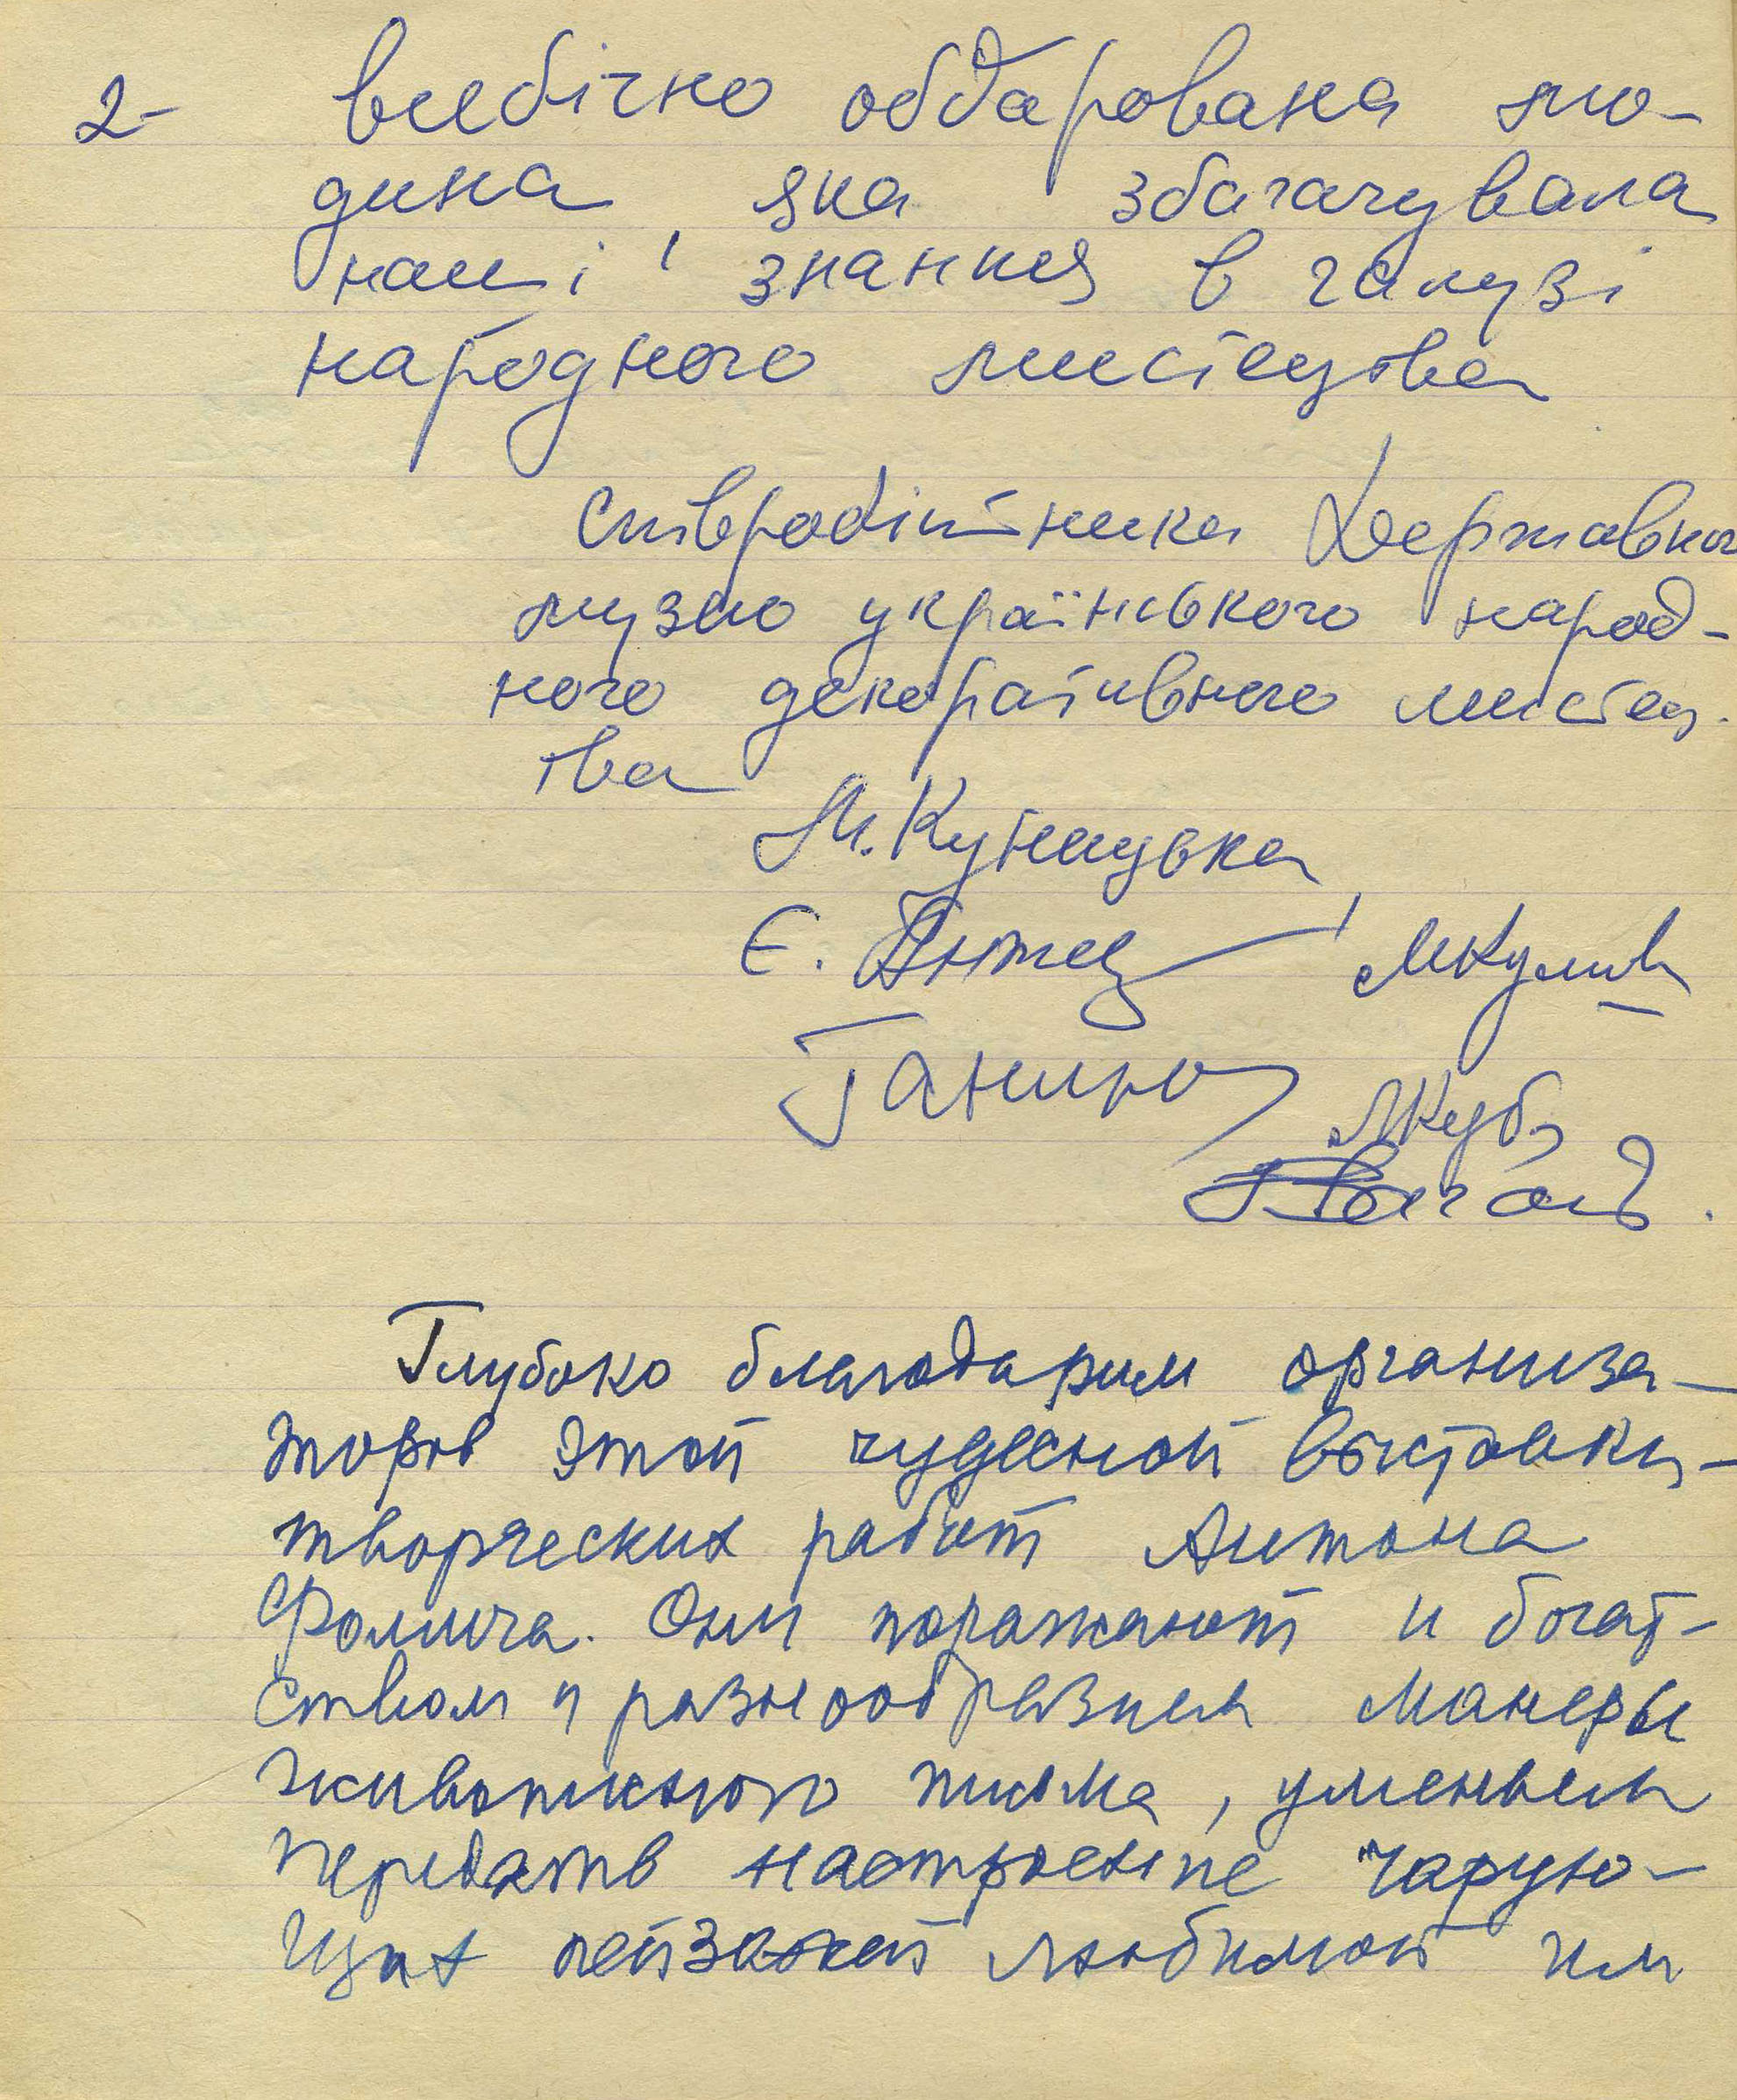 2- всебічно обдарована лю-
дина, яка збагачувала
наші знання в галузі
народного мистецтва
Співробітники Державного
музею українського народ-
ного декоративного мистец-
тва
М. Куницька
Є.
Ганжа
Глубоко благодарим организа-
торов этой чудесной выставки-
творческих работ Антона
Фомича. Они поражают и богат-
ством и разнообразием манеры
живописного письма, уменьем
передать настроение чарую-
щих пейзажей любимой им